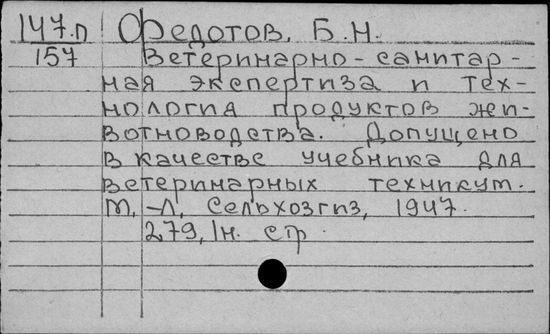 147.п Федотов, Б.Н.
157 Ветеринарно-санитар-
ная экспертиза и тех-
нология продуктов жи-
вотноводства. Допущено
в качестве учебника для
ветеринарных техникум.
М,-Л, Сельхозгиз, 1947.
279, 1н. стр.